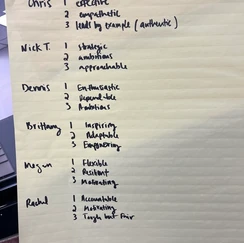 Chris 1 effective
2 empathetic
3 leads by example (authentic)
Nick T. 1 strategic
2 ambitious
3 approachable
Dennis 1 Enthusiastic
2 Dependable
3 Ambitious
Brittany 1 Inspiring
2 Adaptable
3 Empowering
Megan 1 Flexible
2 Resilient
3 Motivating
Rachel 1 Accountable
2 Motivating
3 Tough but Fair